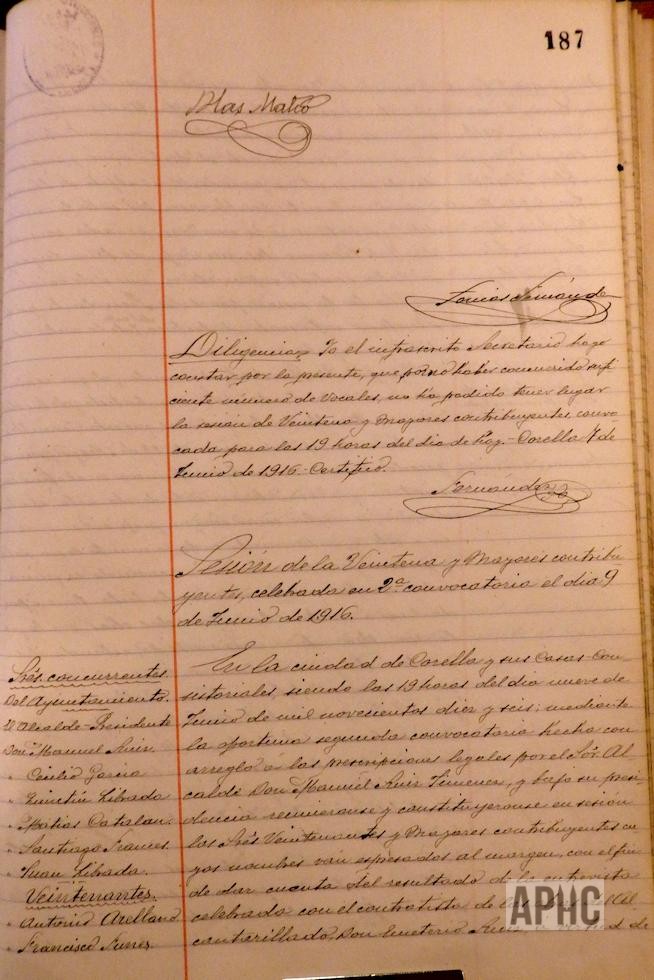 187
Blas Mateo
Fernández
Diligencia. Yo el infrascrito Secretario hago
constar por la presente, que por no haber concurrido sufi
ciente número de Vocales, no ha podido tener lugar
la sesión de Veintena y Mayores contribuyentes convo-
cada para las 19 horas del dia de hoy.- Corella 7 de
Junio de 1916.- Certifico.
Fernández
Sesión de la Veintena y Mayores contribu
yents, celebrada en 2ª convocatoria el dia 9
de Junio de 1916.
Srés concurrentes.
Del Ayuntamiento.
El Alcalde-Presidente
Don Manuel Ruiz
" Cecilio Garcia
" Quintín Librada
" Matias Catalan.
" Santiago
" Juan Librada.
Veintenantes.
" Antonio Arellano
" Francisco
En la ciudad de Corella y sus Casas Con-
sistoriales, siendo las 19 horas del dia nueve de
Junio de mil novecientos diez y seis: mediante
la oportuna segunda convocatoria hecha con
arreglo a las prescripciones legales por el Sór. Al
calde Don Manuel Ruiz Jimenez, y bajo su presi-
dencia reunieronse y constituyeronse en sesión
los Srés Veintenantes y Mayores contribuyentes cu
yos nombres van espresados al margen, con el fin
de dar cuenta del resultado de la entrevista
celebrada con el contratista de las del Al
cantarillado, Don Emeterio de
APHC